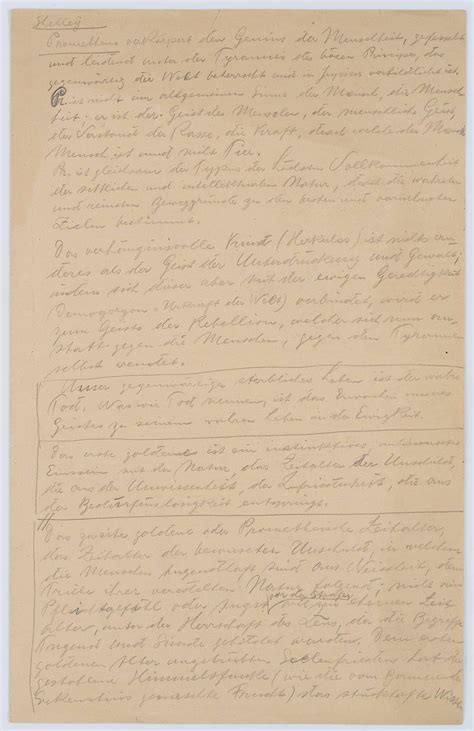 Shelley
Prometheus verkörpert den Genius der Menschheit, gefesselt
und leidend unter der Tyrannei des bösen Prinzips, das
gegenwärtig die Welt beherrscht und in Jupiter verbildlicht ist
Pr. ist nicht im allgemeinen Sinne der Mensch, die Mensch
heit; er ist der Geist des Menschen, der menschliche Geist,
der Verstand der Rasse, die Kraft, durch welche der Mensch
Mensch ist und nicht Tier.
Pr. ist gleichsam der Typus der höchsten Vollkommenheit
der sittlichen und intellektuellen Natur, durch die wahrsten
und reinsten Beweggründe zu den besten und vornehmsten
Zielen bestimmt.
Das verhängnisvolle Kind (Herkules) ist nichts an-
deres als der Geist der Unterdrückung und Gewalt;
indem sich dieser aber mit der ewigen Gerechtigkeit
Demogorgon - Urkraft der Welt) verbindet, wird er
zum Geiste der Rebellion, welcher sich nun an-
statt gegen die Menschen, gegen den Tyrannen
selbst wendet.
Unser gegenwärtiges sterbliches Leben ist der wahre
Tod. Was wir Tod nennen, ist das Erwachen unseres
Geistes zu seinem wahren Leben in der Ewigkeit.
Das erste goldene ist ein instinktives, unbewusstes
Einssein mit der Natur, das Zeitalter der Unschuld,
die aus der Unwissenheit, der Zufriedenheit, die aus
der Bedürfnislosigkeit entspringt.
Das zweite goldene oder Prometheische Zeitalter,
das Zeitalter der bewussten Unschuld, in welchem
die Menschen tugendhaft sind aus Weisheit, dem
Triebe ihrer veredelten Natur folgend; nicht aus
Pflichtgefühl oder Angst vor der Strafe
alter, unter der Herrschaft des Zeus, der die Begriffe
Tugend und Sünde
goldenen Alter Seelenfriedens hat der
gestohlene Himmelsfunke (wie die vom Baume der
Erkenntnis Frucht) das